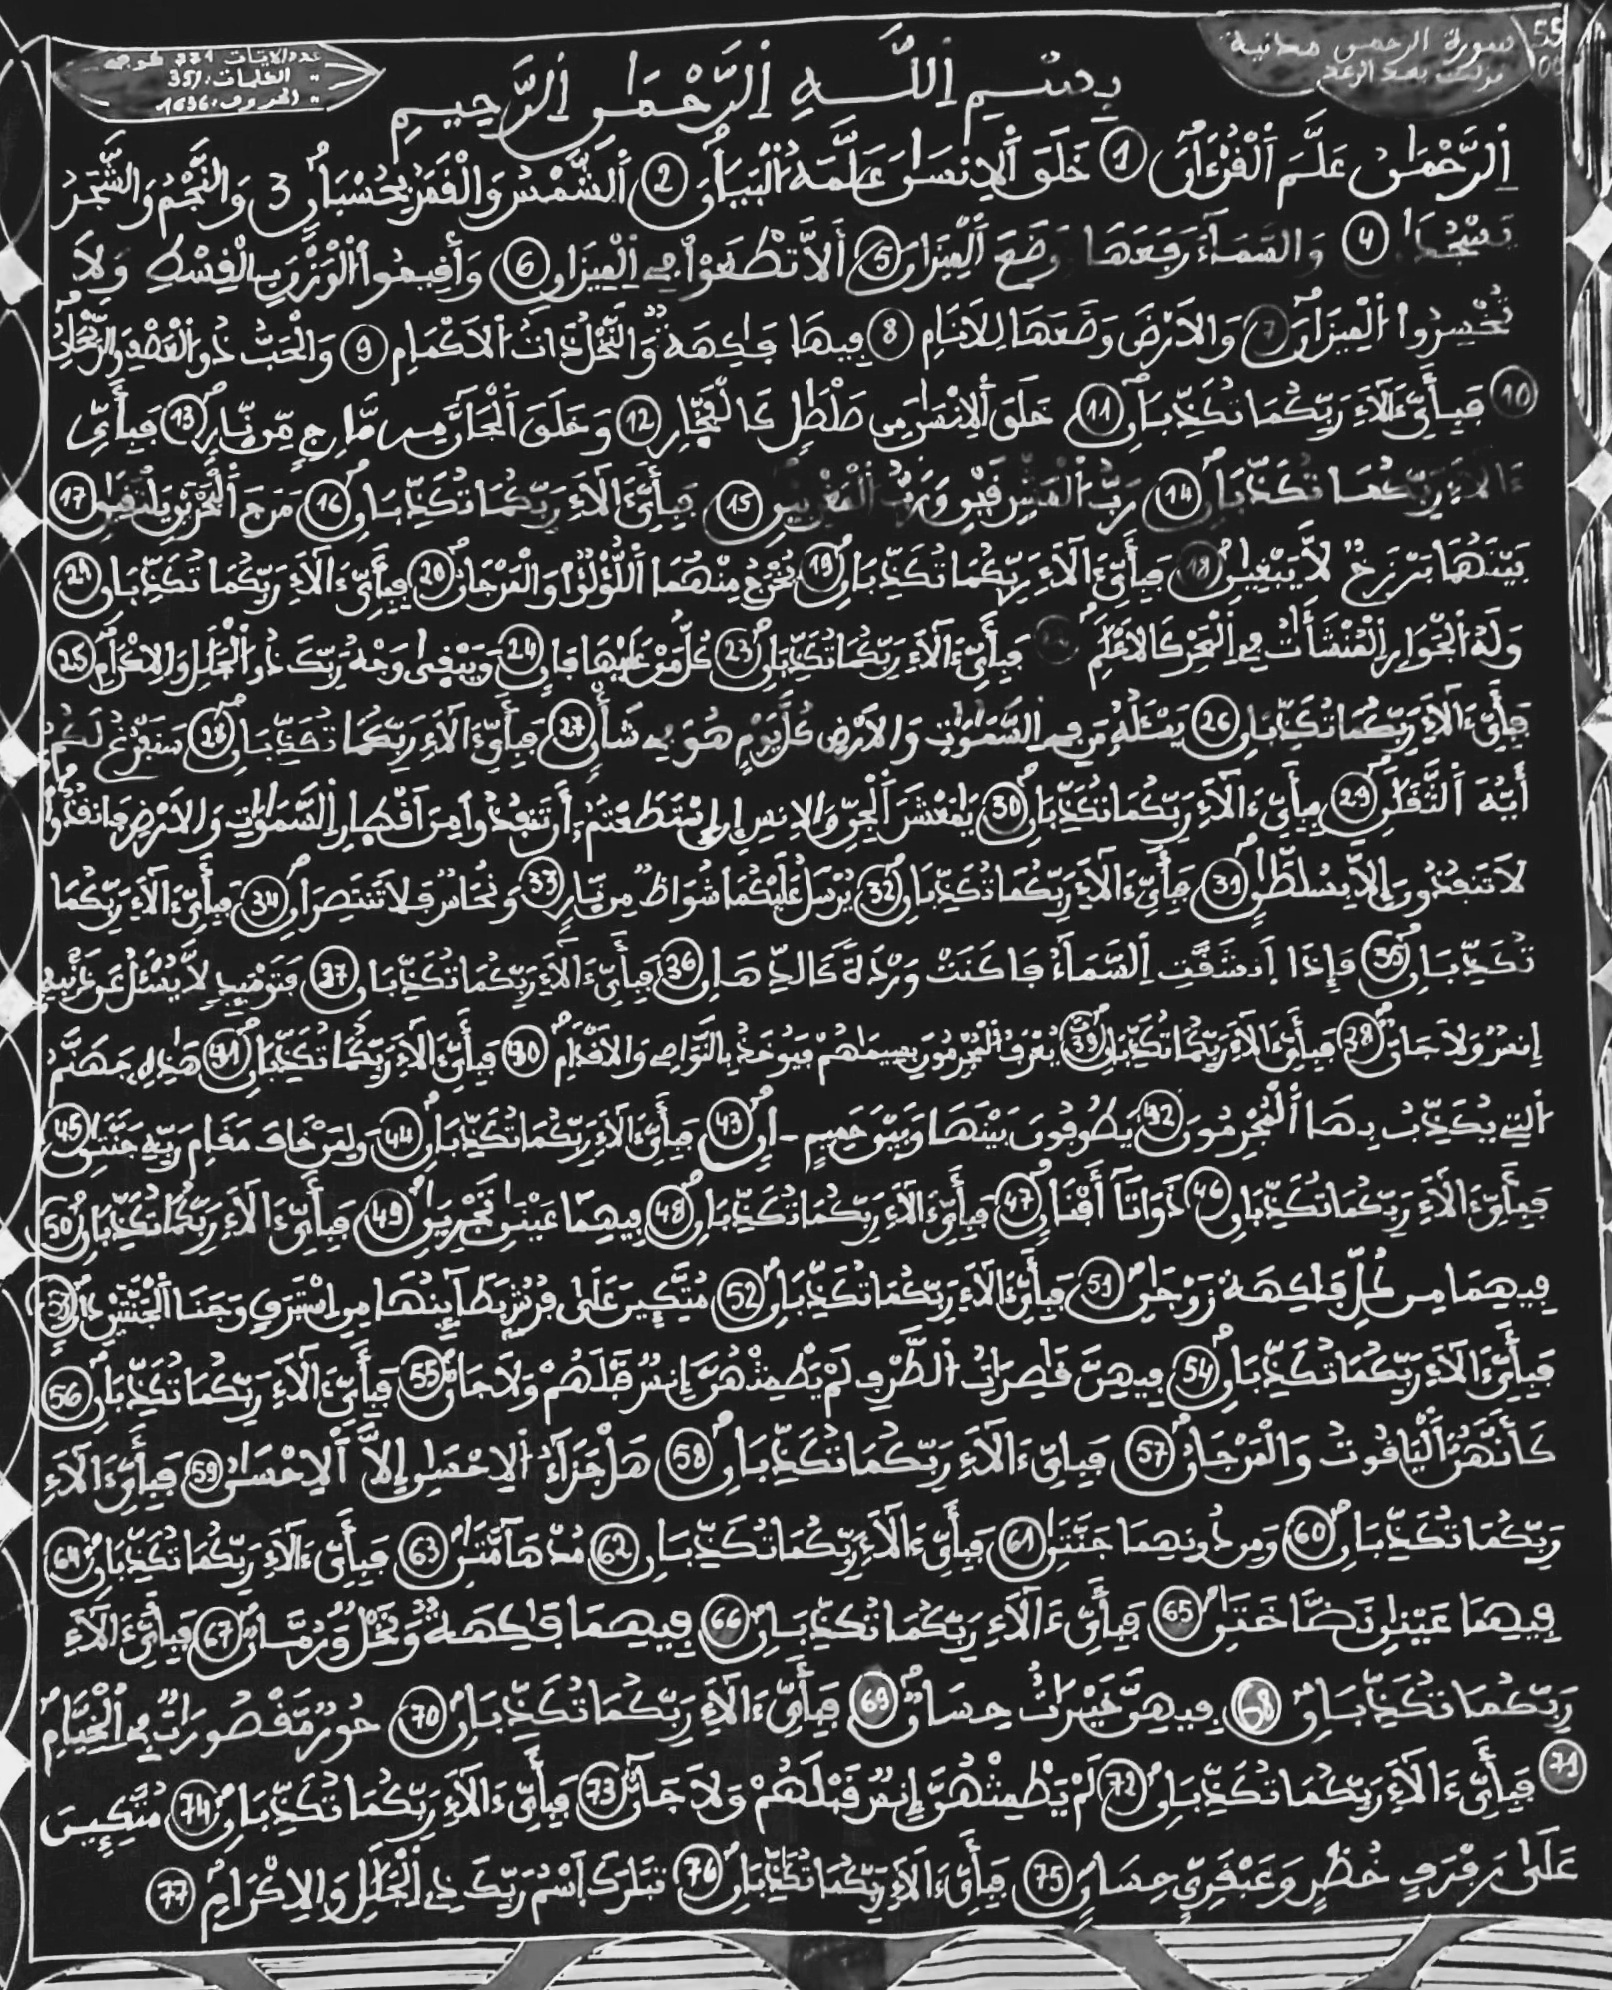 سورة الرحمن مدنية
نزلت بعد الرعد
55
عدد الآيات
الكلمات: 351
الحروف: 1636
بِسْمِ اِ۬للَّهِ اِ۬لرَّحْمَٰنِ اِ۬لرَّحِيمِ
اِ۬لرَّحْمَٰنُ عَلَّمَ اَ۬لْقُرْءَانَ 1 خَلَقَ اَ۬لِانسَٰنَ عَلَّمَهُ اُ۬لْبَيَانَ 2 اَ۬لشَّمْسُ وَالْقَمَرُ بِحُسْبَانٍ 3 وَالنَّجْمُ وَالشَّجَرُ
يَسْجُدَانِ 4 وَالسَّمَآءَ رَفَعَهَا وَوَضَعَ اَ۬لْمِيزَانَ 5 أَلَّا تَطْغَوْاْ فِے اِ۬لْمِيزَانِ 6 وَأَقِيمُواْ اُ۬لْوَزْنَ بِالْقِسْطِ وَلَا
تُخْسِرُواْ اُ۬لْمِيزَانَ 7 وَالَارْضَ وَضَعَهَا لِلَانَامِ 8 فِيهَا فَٰكِهَةٌ وَالنَّخْلُ ذَاتُ اُ۬لَاكْمَامِ 9 وَالْحَبُّ ذُو اُ۬لْعَصْفِ وَالرَّيْحَانُ
10 فَبِأَيِّ ءَالَآءِ رَبِّكُمَا تُكَذِّبَانِ 11 خَلَقَ اَ۬لِانسَٰنَ مِن صَلْصَٰلٍ كَالْفَخَّارِ 12 وَخَلَقَ اَ۬لْجَآنَّ مِن مَّارِجٍ مِّن نَّارٍ 13 فَبِأَيِّ
ءَالَآءِ رَبِّكُمَا تُكَذِّبَانِ 14 رَبُّ اُ۬لْمَشْرِقَيْنِ وَرَبُّ اُ۬لْمَغْرِبَيْنِ 15 فَبِأَيِّ ءَالَآءِ رَبِّكُمَا تُكَذِّبَانِ 16 مَرَجَ اَ۬لْبَحْرَيْنِ يَلْتَقِيَٰنِ 17
بَيْنَهُمَا بَرْزَخٌ لَّا يَبْغِيَٰنِ 18 فَبِأَيِّ ءَالَآءِ رَبِّكُمَا تُكَذِّبَانِ 19 يُخْرَجُ مِنْهُمَا اَ۬للُّؤْلُؤُاْ وَالْمَرْجَانُ 20 فَبِأَيِّ ءَالَآءِ رَبِّكُمَا تُكَذِّبَانِ 21
وَلَهُ اُ۬لْجَوَارِ اِ۬لْمُنشَـَٔاتُ فِے اِ۬لْبَحْرِ كَالَاعْلَٰمِ فَبِأَيِّ ءَالَآءِ رَبِّكُمَا تُكَذِّبَانِ 23 كُلُّ مَنْ عَلَيْهَا فَانٍ 24 وَيَبْقَىٰ وَجْهُ رَبِّكَ ذُو اُ۬لْجَلَٰلِ وَالِاكْرَامِ 25
فَبِأَيِّ ءَالَآءِ رَبِّكُمَا تُكَذِّبَانِ 26 يَسْـَٔلُهُۥ مَن فِے اِ۬لسَّمَٰوَٰتِ وَالَارْضِ كُلَّ يَوْمٍ هُوَ فِے شَأْنٍ 27 فَبِأَيِّ ءَالَآءِ رَبِّكُمَا تُكَذِّبَانِ 28 سَنَفْرُغُ لَكُمُۥٓ
أَيُّهَ اَ۬لثَّقَلَٰنِ 29 فَبِأَيِّ ءَالَآءِ رَبِّكُمَا تُكَذِّبَانِ 30 يَٰمَعْشَرَ اَ۬لْجِنِّ وَالِانسِ إِنِ اِ۪سْتَطَعْتُمُۥٓ أَن تَنفُذُواْ مِنَ اَقْطَارِ اِ۬لسَّمَٰوَٰتِ وَالَارْضِ فَانفُذُواْ
لَا تَنفُذُونَ إِلَّا بِسُلْطَٰنٍ 31 فَبِأَيِّ ءَالَآءِ رَبِّكُمَا تُكَذِّبَانِ 32 يُرْسَلُ عَلَيْكُمَا شُوَاظٌ مِّن نَّارٍ 33 وَنُحَاسٌ فَلَا تَنتَصِرَانِ 34 فَبِأَيِّ ءَالَآءِ رَبِّكُمَا
تُكَذِّبَانِ 35 فَإِذَا اَ۪نشَقَّتِ اِ۬لسَّمَآءُ فَكَانَتْ وَرْدَةً كَالدِّهَانِ 36 فَبِأَيِّ ءَالَآءِ رَبِّكُمَا تُكَذِّبَانِ 37 فَيَوْمَئِذٍ لَّا يُسْـَٔلُ عَن ذَنۢبِهِۦٓ
إِنسٌ وَلَا جَآنٌّ 38 فَبِأَيِّ ءَالَآءِ رَبِّكُمَا تُكَذِّبَانِ 39 يُعْرَفُ اُ۬لْمُجْرِمُونَ بِسِيمَٰهُمْ فَيُوخَذُ بِالنَّوَٰصِے وَالَاقْدَامِ 40 فَبِأَيِّ ءَالَآءِ رَبِّكُمَا تُكَذِّبَانِ 41 هَٰذِهِۦ جَهَنَّمُ
اُ۬لتِے يُكَذِّبُ بِهَا اَ۬لْمُجْرِمُونَ 42 يَطُوفُونَ بَيْنَهَا وَبَيْنَ حَمِيمٍ ـ اٰنٍ 43 فَبِأَيِّ ءَالَآءِ رَبِّكُمَا تُكَذِّبَانِ 44 وَلِمَنْ خَافَ مَقَامَ رَبِّهِۦ جَنَّتَٰنِ 45
فَبِأَيِّ ءَالَآءِ رَبِّكُمَا تُكَذِّبَانِ 46 ذَوَاتَآ أَفْنَانٍ 47 فَبِأَيِّ ءَالَآءِ رَبِّكُمَا تُكَذِّبَانِ 48 فِيهِمَا عَيْنَٰنِ تَجْرِيَٰنِ 49 فَبِأَيِّ ءَالَآءِ رَبِّكُمَا تُكَذِّبَانِ 50
فِيهِمَا مِن كُلِّ فَٰكِهَةٍ زَوْجَٰنِ 51 فَبِأَيِّ ءَالَآءِ رَبِّكُمَا تُكَذِّبَانِ 52 مُتَّكِـِٕينَ عَلَىٰ فُرُشٍ بَطَآئِنُهَا مِنِ اِسْتَبْرَقٍ وَجَنَا اَ۬لْجَنَّتَيْنِ دَانٍ 53
فَبِأَيِّ ءَالَآءِ رَبِّكُمَا تُكَذِّبَانِ 54 فِيهِنَّ قَٰصِرَٰتُ اُ۬لطَّرْفِ لَمْ يَطْمِثْهُنَّ إِنسٌ قَبْلَهُمْ وَلَا جَآنٌّ 55 فَبِأَيِّ ءَالَآءِ رَبِّكُمَا تُكَذِّبَانِ 56
كَأَنَّهُنَّ اَ۬لْيَاقُوتُ وَالْمَرْجَانُ 57 فَبِأَيِّ ءَالَآءِ رَبِّكُمَا تُكَذِّبَانِ 58 هَلْ جَزَآءُ اُ۬لِاحْسَٰنِ إِلَّا اَ۬لِاحْسَٰنُ 59 فَبِأَيِّ ءَالَآءِ
رَبِّكُمَا تُكَذِّبَانِ 60 وَمِن دُونِهِمَا جَنَّتَٰنِ 61 فَبِأَيِّ ءَالَآءِ رَبِّكُمَا تُكَذِّبَانِ 62 مُدْهَآمَّتَٰنِ 63 فَبِأَيِّ ءَالَآءِ رَبِّكُمَا تُكَذِّبَانِ 64
فِيهِمَا عَيْنَٰنِ نَضَّاخَتَٰنِ 65 فَبِأَيِّ ءَالَآءِ رَبِّكُمَا تُكَذِّبَانِ 66 فِيهِمَا فَٰكِهَةٌ وَنَخْلٌ وَرُمَّانٌ 67 فَبِأَيِّ ءَالَآءِ
رَبِّكُمَا تُكَذِّبَانِ 68 فِيهِنَّ خَيْرَٰتٌ حِسَانٌ 69 فَبِأَيِّ ءَالَآءِ رَبِّكُمَا تُكَذِّبَانِ 70 حُورٌ مَّقْصُورَٰتٌ فِے اِ۬لْخِيَامِ
71 فَبِأَيِّ ءَالَآءِ رَبِّكُمَا تُكَذِّبَانِ 72 لَمْ يَطْمِثْهُنَّ إِنسٌ قَبْلَهُمْ وَلَا جَآنٌّ 73 فَبِأَيِّ ءَالَآءِ رَبِّكُمَا تُكَذِّبَانِ 74 مُتَّكِـِٕينَ
عَلَىٰ رَفْرَفٍ خُضْرٍ وَعَبْقَرِيٍّ حِسَانٍ 75 فَبِأَيِّ ءَالَآءِ رَبِّكُمَا تُكَذِّبَانِ 76 تَبَٰرَكَ اَ۪سْمُ رَبِّكَ ذِے اِ۬لْجَلَٰلِ وَالِاكْرَامِ 77